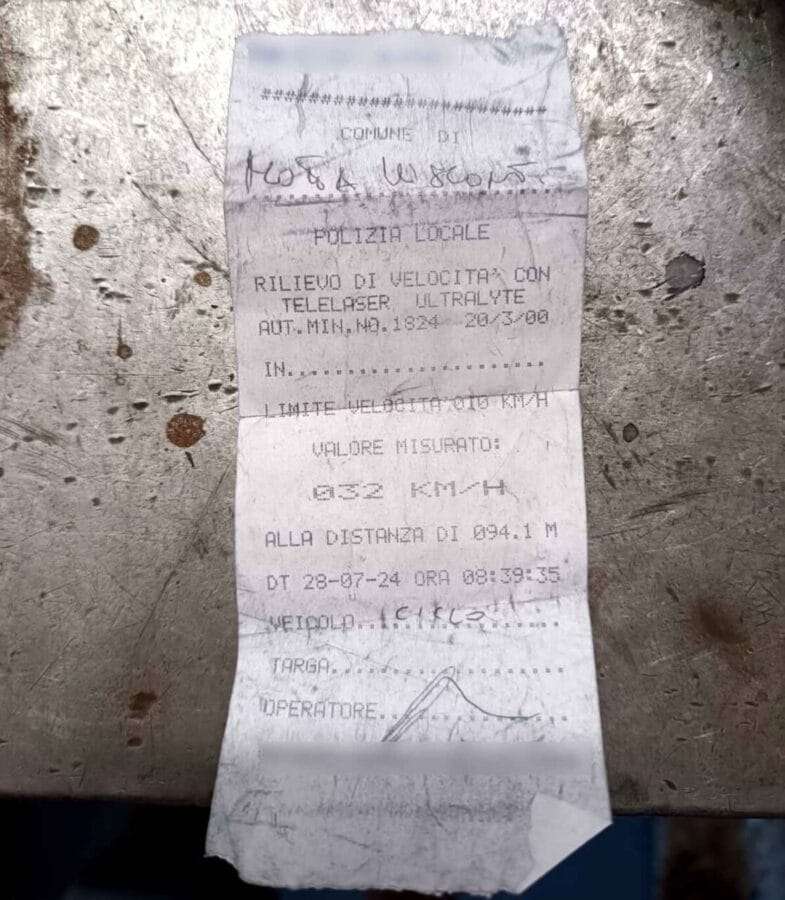 ########################
COMUNE DI
MOTTA VISCONTI
POLIZIA LOCALE
RILIEVO DI VELOCITA' CON
TELELASER ULTRALYTE
AUT.MIN.NO.1824 20/3/00
IN......................
LIMITE VELOCITA'010 KM/H
VALORE MISURATO:
032 KM/H
ALLA DISTANZA DI 094.1 M
DT 28-07-24 ORA 08:39:35
VEICOLO..................
TARGA....................
OPERATORE................